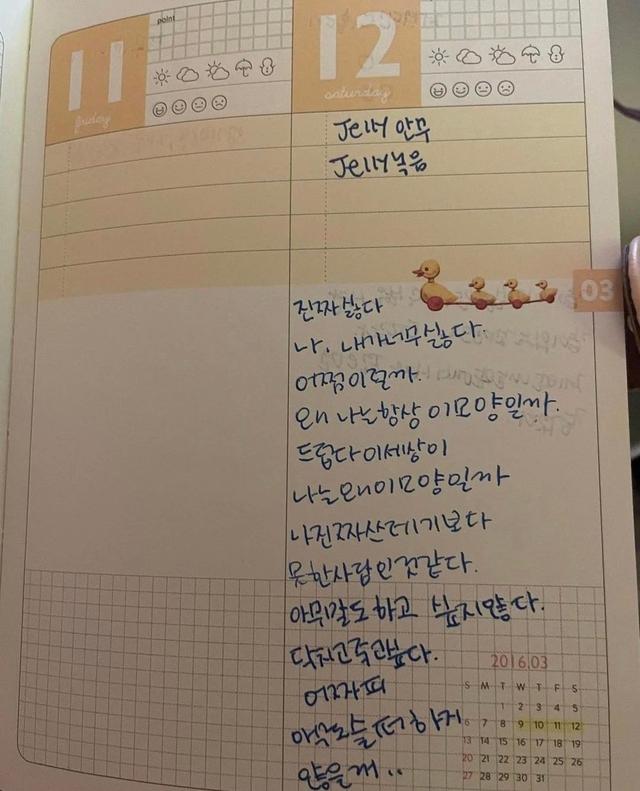 11
point
friday
12
saturday
Jelly 안무
Jelly 녹음
03
진짜 싫다
나. 내가너무싫다.
어쩜이럴까.
왜 나는항상 이모양일까.
드럽다이세상이
나는왜이모양일까
나진짜산레기보다
못한사람인것같다.
아무말도하고 싶지않다.
닥치고죽고싶다.
어짜피
아무도슬퍼하지
않을걸..
2016.03
S M T W T F S
1 2 3 4 5
6 7 8 9 10 11 12
13 14 15 16 17 18 19
20 21 22 23 24 25 26
27 28 29 30 31